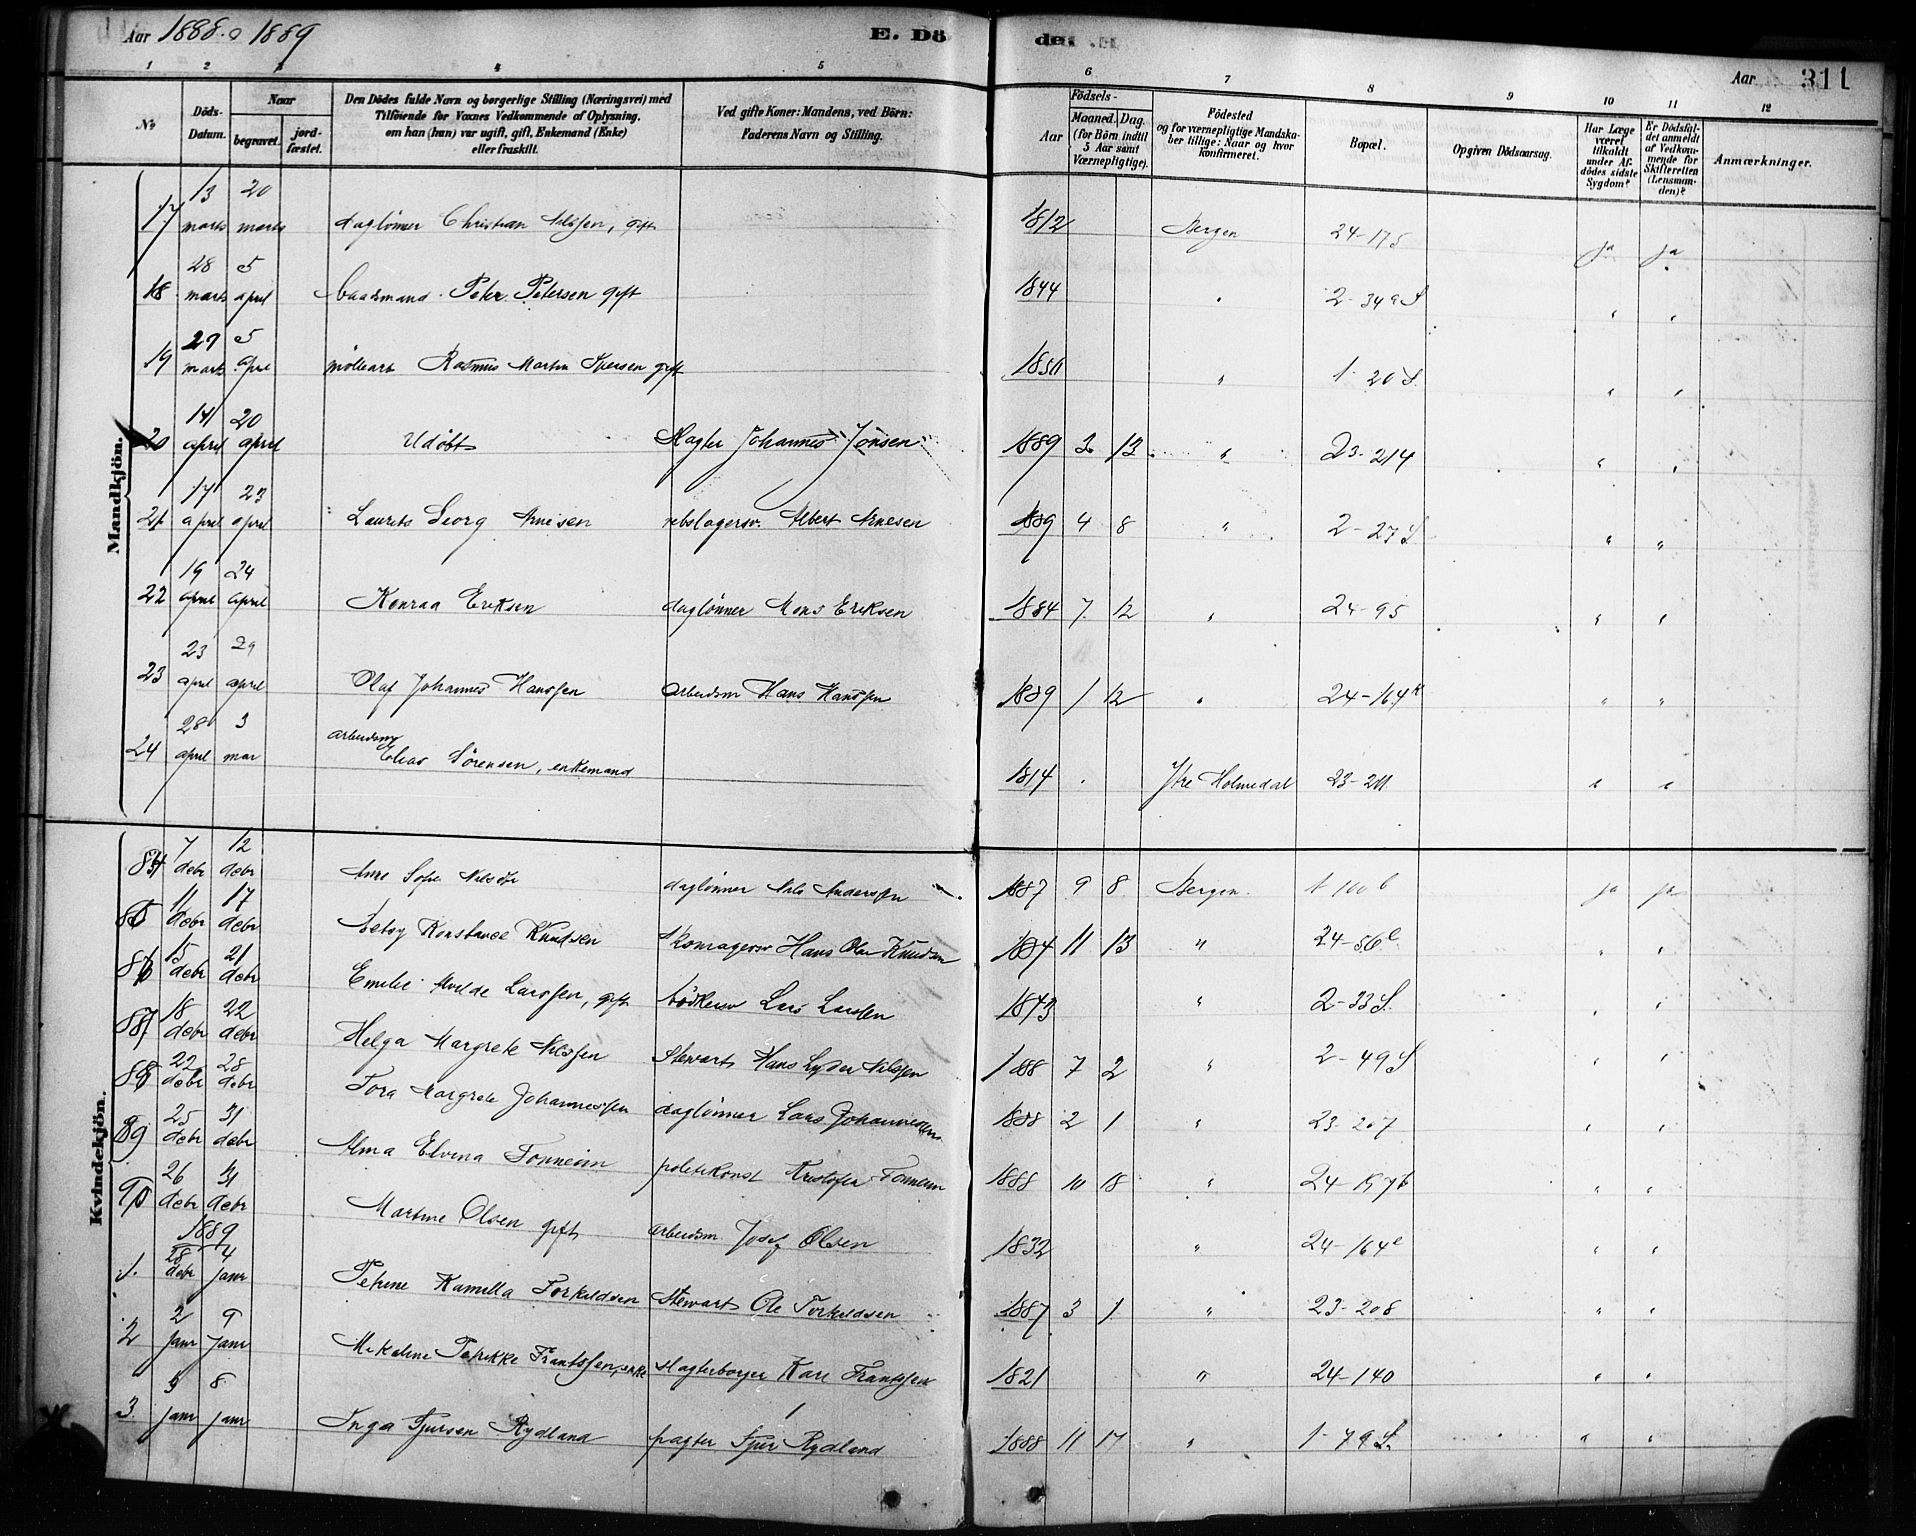 Aar 1888 o 1889 E. Dö
de E. Aar 311
1 2 3 4 5 6 7 8 9 10 11 12
No
Döds-Datum.
Naar
begravet.
jord-fæstet.
Den Dödes fulde Navn og borgerlige Stilling (Næringsvei) med
Tilföiende for Voxnes Vedkommende af Oplysning,
om han (hun) var ugift, gift, Enkemand (Enke)
eller fraskilt.
Ved gifte Koner: Mandens, ved Börn:
Faderens Navn og Stilling.
Födsels-
Aar
Maaned. Dag.
(for Börn indtil
5 Aar samt
Værnepligtige).
Födested
og for værnepligtige Mandska-
ber tillige: Naar og hvor
Konfirmeret.
Bopæl.
Opgiven Dödsaarsag.
Har Læge
været
tilkaldt
under Af-
dödes sidste
Sygdom?
Er Dödsfal-
det anmeldt
af Vedkom-
mende for
Skifteretten
(Lensman-
den)?
Anmærkninger.
Mandkjön.
17 13 marts 20 marts daglønner Christian Nilssen, gift 1812 Bergen 24-175 ja ja
18 28 marts 5 april Baadsmand Peter Petersen gift 1844 " 2-349 S " "
19 29 marts 5 april møllearb Rasmus Martin Iversen gift 1850 " 1-20 S. " "
20 14 april 20 april Udøbt Slagter Johannes Jonsen 1889 2 12 " 23-214 " "
21 17 april 23 april Laurits Georg Arnesen rebslagersv. Albert Arnesen 1889 4 8 " 2-27 S " "
22 19 april 24 april Konrad Eriksen daglønner Mons Eriksen 1884 7 12 " 24-95 " "
23 23 april 29 april Olaf Johannes Hanssen arbeidsm Hans Hanssen 1889 1 12 " 24-164 " "
24 28 april 3 mai arbeidsm Elias Sørensen, enkemand 1814 Ytre Holmedal 23-211 " "
Kvindekjön.
84 7 debr 12 debr Anne Sofie Nilsdtr daglønner Nils Anderssen 1887 9 8 Bergen 1 100 b ja ja
85 11 debr 17 debr Betsy Konstance Knudsen Skomagersv Hans Olai Knudsen 1884 11 13 " 24-56 c " "
86 15 debr 21 debr Emilie Alvilde Larssen, gift bødkersv Lars Larssen 1843 " 2-33 S. " "
87 18 debr 22 debr Helga Margrete Nilssen Stewart Hans Lyder Nilssen 1888 7 2 " 2-49 S " "
88 22 debr 28 debr Tora Margrete Johannessen daglønner Lars Johannessen 1888 2 1 " 23-207 " "
89 25 debr 31 debr Alma Elvina Tonneim politikonst Kristofer Tonneim 1888 10 18 " 24-197 b " "
90 26 debr 31 debr Martine Olsen gift arbeidsm Josef Olsen 1832 " 24-164 e " "
1889
1. 28 debr 4 janr Petrine Kamilla Torkildsen Stewart Ole Torkildsen 1887 3 1 " 23-208 " "
2 2 janr 9 janr Mikaline Petrikke Frantssen, enke slagterborger Karl Frantssen 1821 " 24-140 " "
3. 5 janr 8 janr Inga Sjursen Rydland pagter Sjur Rydland 1888 11 17 " 1-79 S. " "